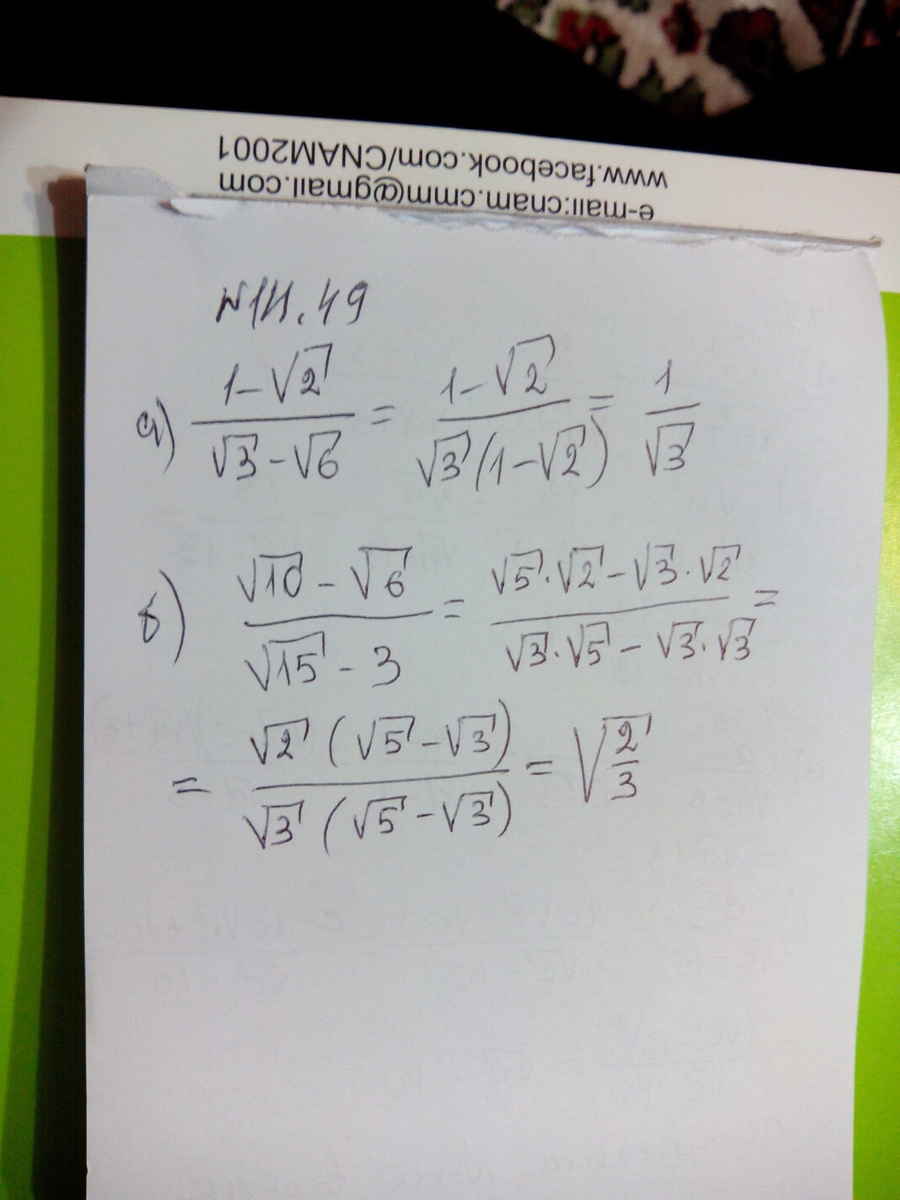 www.facebook.com/CNAM2001
e-mail:cnam.cmm@gmail.com
№14.49
а) (1-√2)/(√3-√6) = (1-√2)/(√3(1-√2)) = 1/√3
б) (√10-√6)/(√15-3) = (√5·√2-√3·√2)/(√3·√5-√3·√3) =
= (√2(√5-√3))/(√3(√5-√3)) = √(2/3)